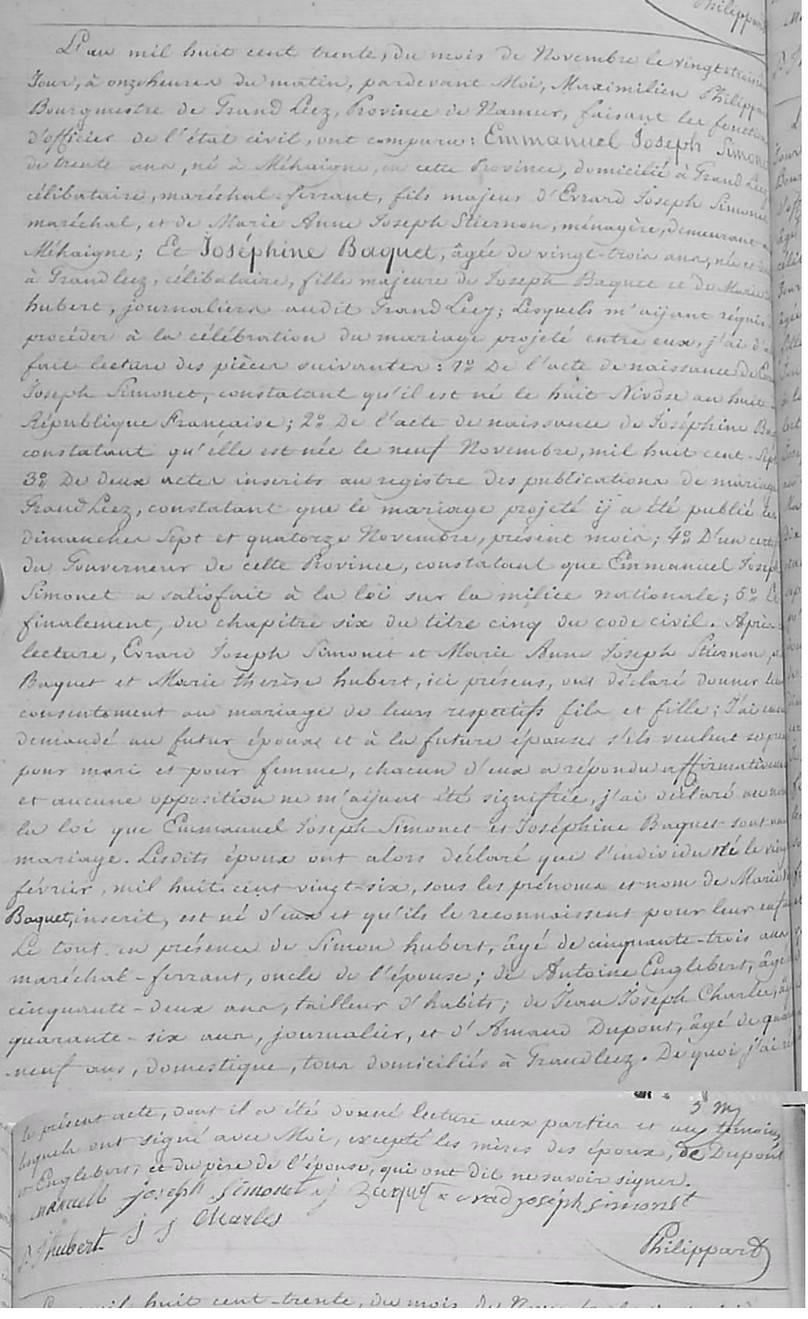 Philippart
L'an mil huit cent trente, du mois de Novembre le vingt-troisième
Jour, à onze heures du matin, pardevant Moi, Maximilien Philippart
Bourgmestre de Grand Leez, Province de Namur, faisant les fonctions
d'officier de l'état civil, ont comparu: Emmanuel Joseph Simonet
de trente ans, né à Méhaigne, en cette Province, domicilié à Grand Leez
célibataire, maréchal-ferrant, fils majeur d'Evrard Joseph Simonet
maréchal, et de Marie Anne Joseph Stiernon, ménagère, demeurant à
Méhaigne; Et Joséphine Baquet, âgée de vingt-trois ans, née et
à Grandleez, célibataire, fille majeure de Joseph Baquet et de Marie
hubert, journaliers audit Grand Leez; Lesquels m'aijant requis
procéder à la célébration du mariage projeté entre eux, j'ai
fait lecture des pièces suivantes: 1º De l'acte de naissance de
Joseph Simonet, constatant qu'il est né le huit Nivôse an huit
République Française; 2º De l'acte de naissance de Joséphine
constatant qu'elle est née le neuf Novembre, mil huit cent-Sept
3º De deux actes inscrits au registre des publications de mariage
Grand Leez, constatant que le mariage projeté ij a été publié les
dimanches Sept et quatorze Novembre, présent mois; 4º D'un
du Gouverneur de cette Province, constatant que Emmanuel Joseph
Simonet a satisfait à la loi sur la milice nationale; 5º Et
finalement, du chapitre six du titre cinq du code civil. Après
lecture, Evrard Joseph Simonet et Marie Anne Joseph Stiernon,
Baquet et Marie therèse hubert, ici présens, ont déclaré donner leur
consentement au mariage de leurs respectifs fils et fille; J'ai
demandé au futur époux et à la future épouse s'ils veulent se prendre
pour mari et pour femme, chacun d'eux a répondu affirmativement
et aucune opposition ne m'aijant été signifiée, j'ai déclaré au nom
la loi que Emmanuel Joseph Simonet et Joséphine Baquet sont
mariage. Lesdits époux ont alors déclaré que l'individu né le
février, mil huit cent-vingt-six, sous les prénoms et nom de Marie
Baquet, inscrit, est né d'eux et qu'ils le reconnaissent pour leur enfant
Le tout en présence de Simon hubert, âgé de cinquante-trois ans
maréchal-ferrant, oncle de l'épouse; de Antoine Englebert, âgé
cinquante-deux ans, tailleur d'habits; de Jean Joseph Charles,
quarante-six ans, journalier, et d'Amand Dupont, âgé de
neuf ans, domestique, tous domiciliés à Grandleez. De quoi j'ai
le présent acte, dont il a été donné lecture aux parties et aux témoins
lesquels ont signé avec Moi, excepté les mères des époux, de Dupont
et Englebert, et du père de l'épouse, qui ont dit ne savoir signer.
joseph Simonet j Baquet joseph simonet
hubert j j Charles
Philippart
mil huit cent-trente, du mois de